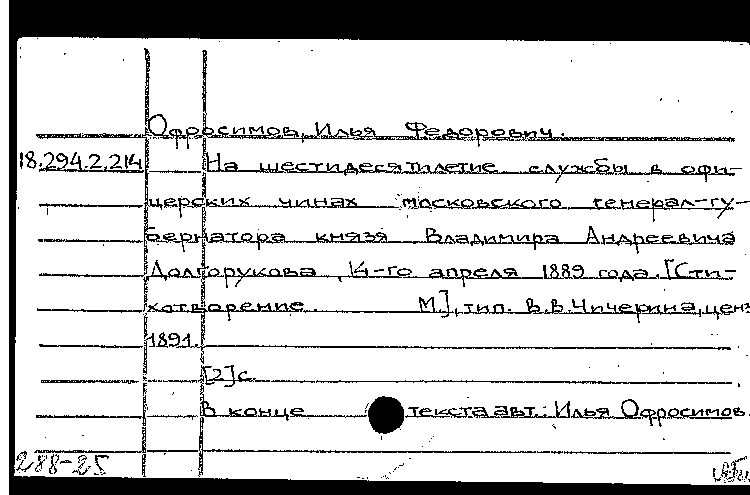 Офросимов, Илья Федорович.
18.294.2.214 На шестидесятилетие службы в офи-
церских чинах московского генерал-гу-
бернатора князя Владимира Андреевича
Долгорукова, 14-го апреля 1889 года. [Сти-
хотворение. М.], тип. В.В. Чичерина, ценз
1891.
[2]с.
В конце текста авт.: Илья Офросимов.
288-25